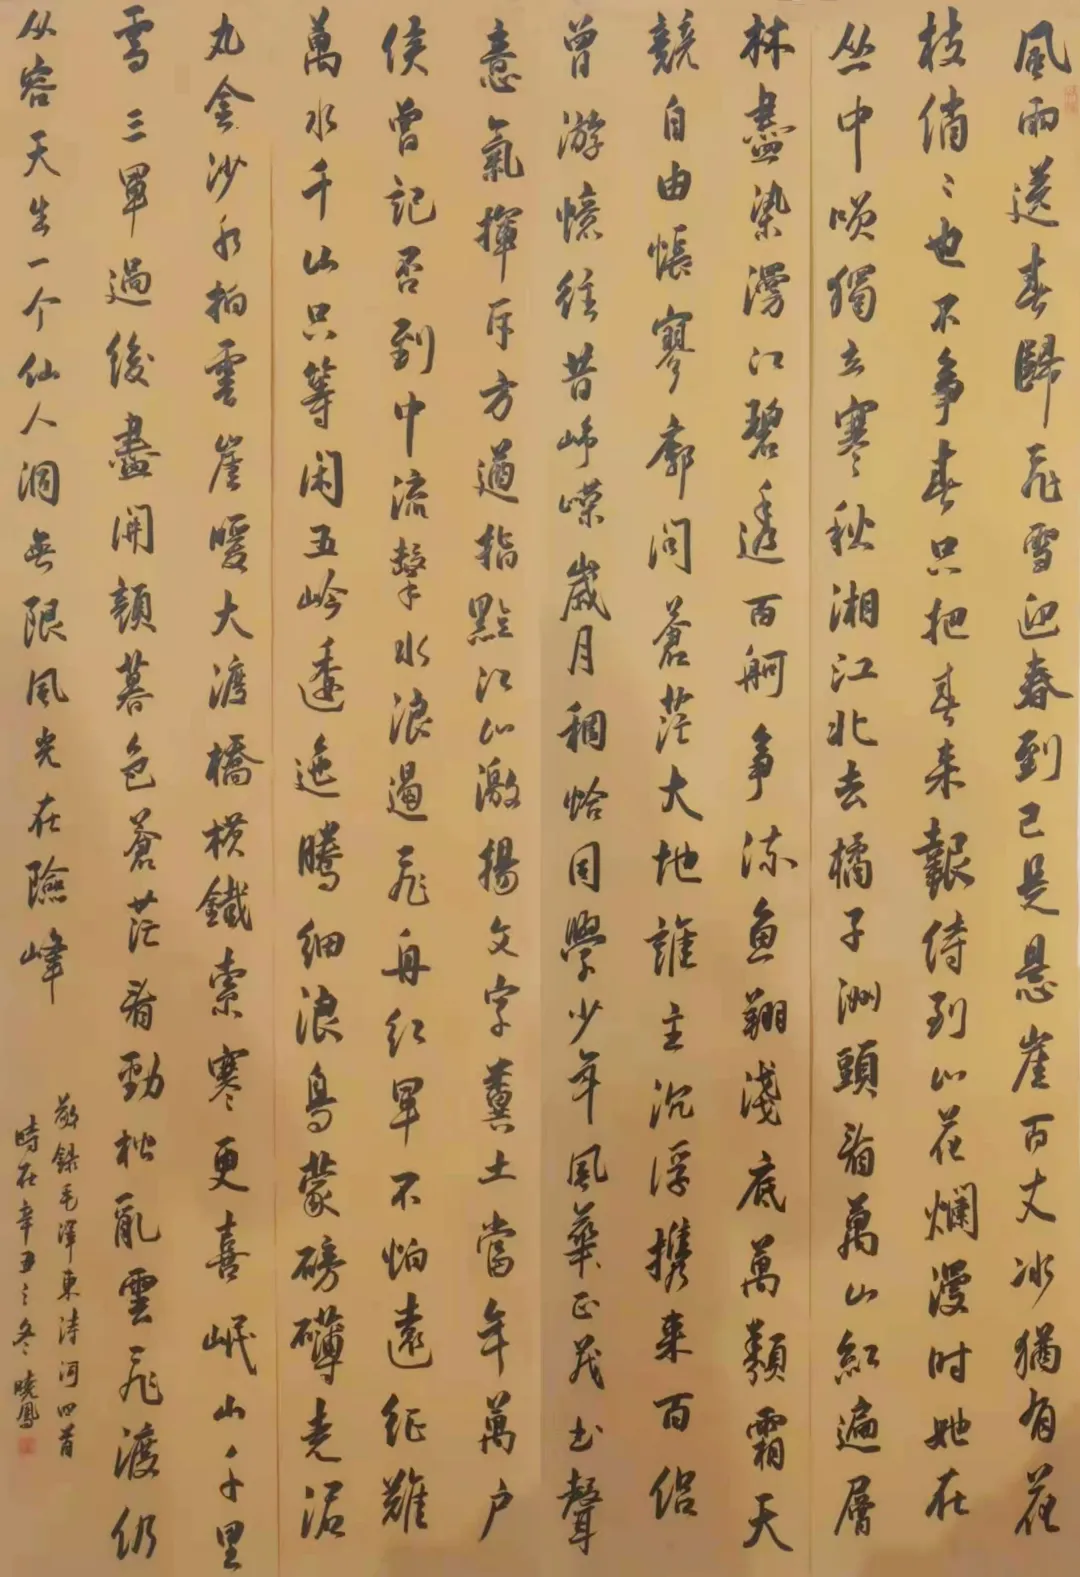 風雨送春歸飛雪迎春到已是懸崖百丈冰猶有花
枝俏〻也不爭春只把春来報待到山花爛漫时她在
丛中唉獨立寒秋湘江北去橘子洲頭看萬山紅遍層
林盡染漫江碧透百舸争流魚翔淺底萬類霜天
競自由悵寥廓问蒼茫大地誰主沉浮携来百侣
曾游憶往昔峥嵘歲月稠恰同學少年風華正茂书聲
意氣揮斥方遒指點江山激揚文字糞土當年萬户
侯曾记否到中流擊水浪遏飛舟红軍不怕遠征難
萬水千山只等闲五岭逶迤腾细浪烏蒙磅礴走泥
丸金沙水拍雲崖暖大渡橋横鐵索寒更喜岷山千里
雪三軍過後盡開顔暮色蒼茫看勁松乱雲飛渡仍
从容天生一个仙人洞無限風光在險峰
敬録毛澤東诗词四首
時在辛丑之冬曉鳳